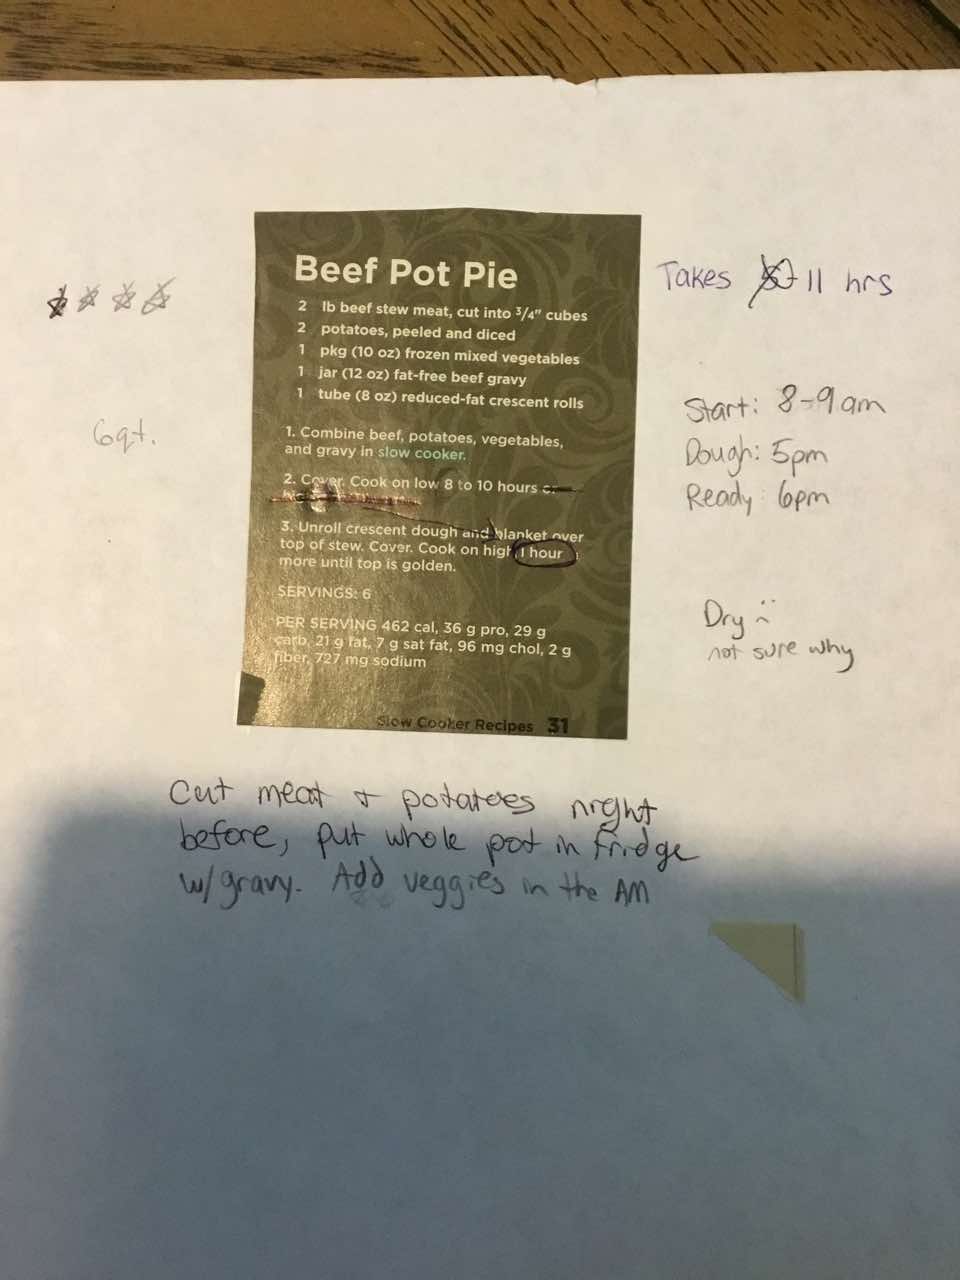 Beef Pot Pie
2 lb beef stew meat, cut into 3/4" cubes
2 potatoes, peeled and diced
1 pkg (10 oz) frozen mixed vegetables
1 jar (12 oz) fat-free beef gravy
1 tube (8 oz) reduced-fat crescent rolls
1. Combine beef, potatoes, vegetables,
and gravy in slow cooker.
2. Cover. Cook on low 8 to 10 hours or
3. Unroll crescent dough and blanket over
top of stew. Cover. Cook on high 1 hour
more until top is golden.
SERVINGS: 6
PER SERVING 462 cal, 36 g pro, 29 g
carb, 21 g fat, 7 g sat fat, 96 mg chol, 2 g
fiber, 727 mg sodium
Slow Cooker Recipes 31
6qt.
Takes 11 hrs
Start: 8-9am
Dough: 5pm
Ready: 6pm
Dry :(
not sure why
Cut meat + potatoes night
before, put whole pot in fridge
w/ gravy. Add veggies in the AM